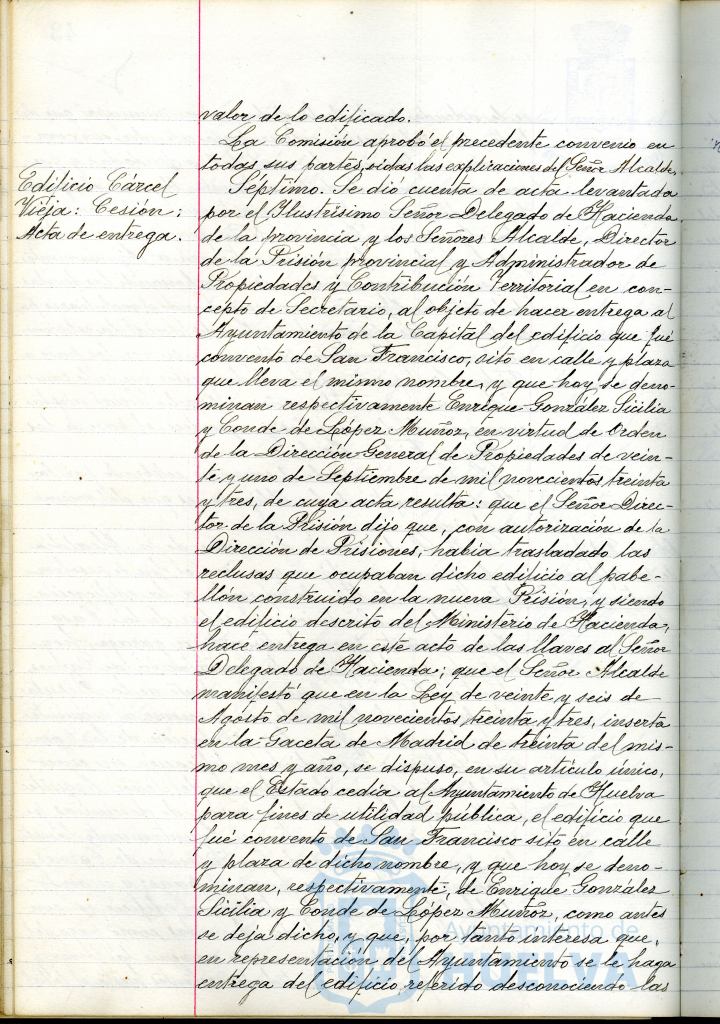 valor de lo edificado.
La Comisión aprobó el precedente convenio en
todas sus partes, oidas las explicaciones del Señor Alcalde.
Edilicio Cárcel
Vieja: Cesión:
Acta de entrega.
Séptimo. Se dió cuenta de acta levantada
por el Ilustrísimo Señor Delegado de Hacienda
de la provincia y los Señores Alcalde, Director
de la Prisión provincial y Administrador de
Propiedades y Contribución Territorial en con-
cepto de Secretario, al objeto de hacer entrega al
Ayuntamiento de la Capital del edificio que fué
convento de San Francisco, sito en calle y plaza
que lleva el mismo nombre, y que hoy se deno-
minan respectivamente Enrique González Sicilia
y Conde de López Muñoz, en virtud de Orden
de la Dirección General de Propiedades de vein-
te y uno de Septiembre de mil novecientos treinta
y tres, de cuya acta resulta: que el Señor Direc-
tor de la Prisión dijo que, con autorización de la
Dirección de Prisiones, había trasladado las
reclusas que ocupaban dicho edificio al pabe-
llón construido en la nueva Prisión, y siendo
el edificio descrito del Ministerio de Hacienda,
hace entrega en este acto de las llaves al Señor
Delegado de Hacienda; que el Señor Alcalde
manifestó que en la Ley de veinte y seis de
Agosto de mil novecientos treinta y tres, inserta
en la Gaceta de Madrid de treinta del mis-
mo mes y año, se dispuso, en su artículo único,
que el Estado cedía al Ayuntamiento de Huelva
para fines de utilidad pública, el edificio que
fué convento de San Francisco sito en calle
y plaza de dicho nombre, y que hoy se deno-
minan, respectivamente, de Enrique González
Sicilia y Conde de López Muñoz, como antes
se deja dicho, y que, por tanto interesa que,
en representación del Ayuntamiento se le haga
entrega del edificio referido desconociendo las
Ayuntamiento de
HUELVA